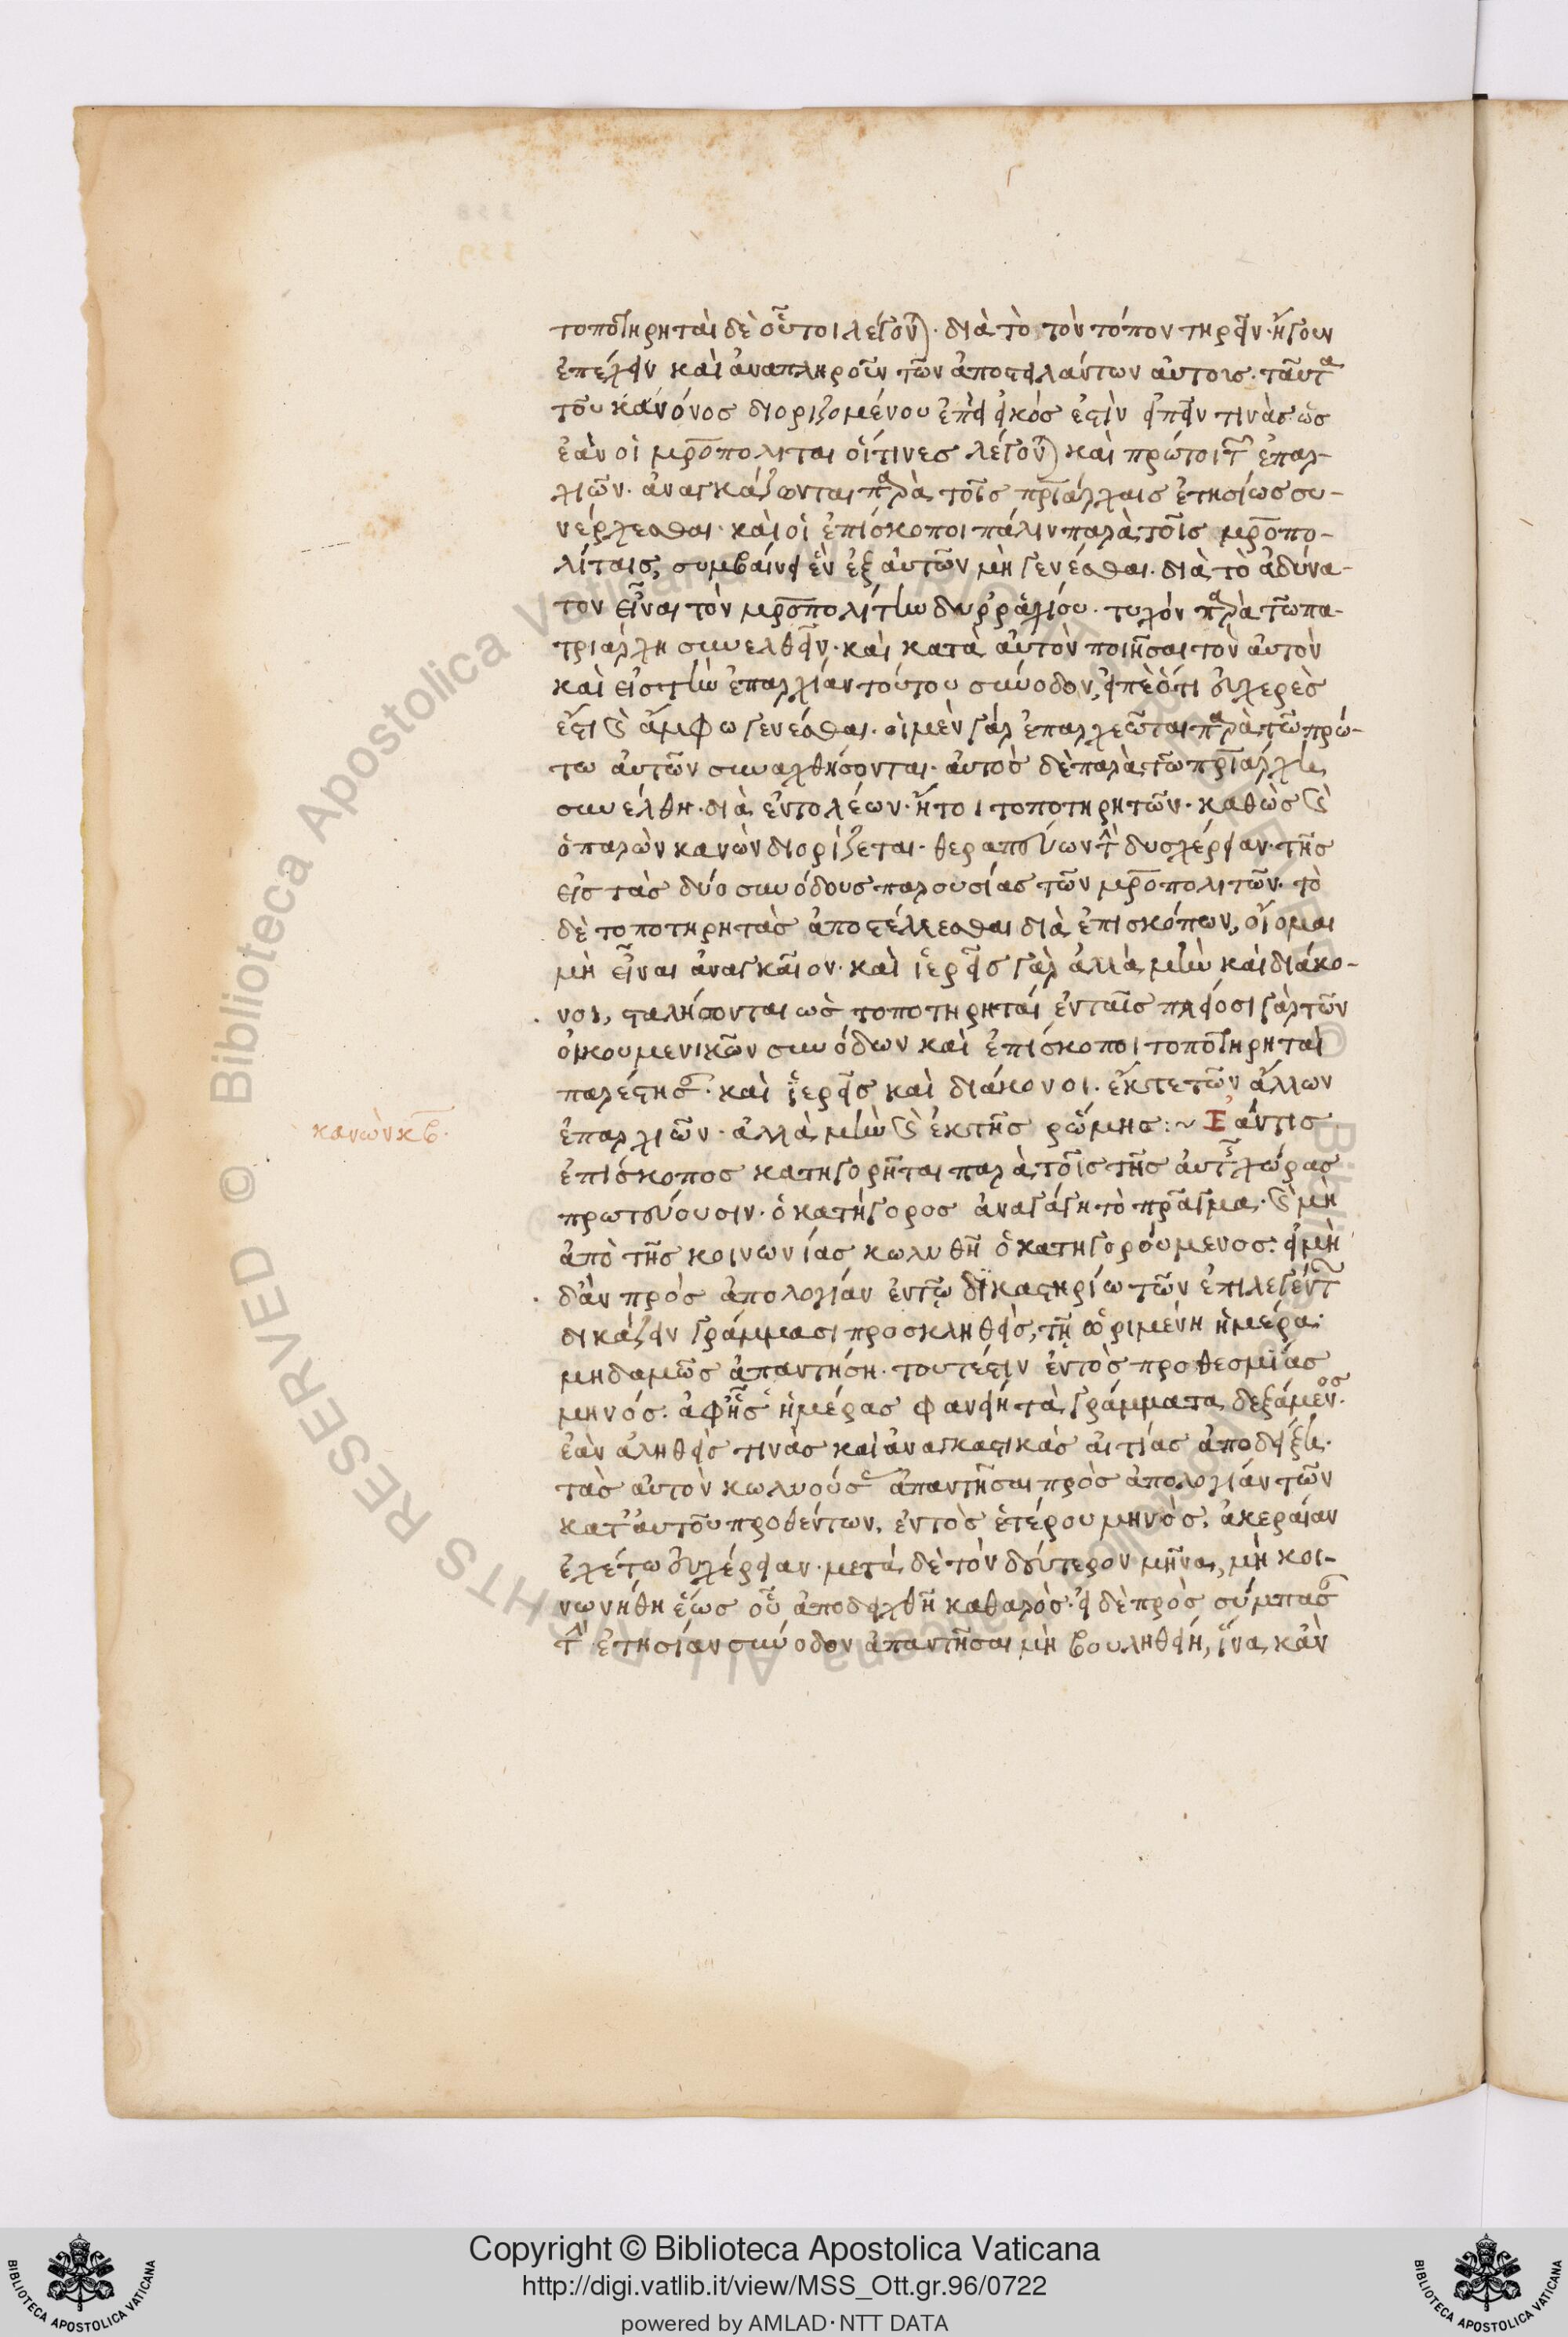 τοποτηρηταὶ δὲ οὗτοι λέγονται· διὰ τὸ τὸν τόπον τηρεῖν· ἤγουν
ἐπέχειν καὶ ἀναπληροῦν τῶν ἀποστειλάντων αὐτοις· ταῦτα
τοῦ κανόνος διοριζομένου ἐπεὶ εἰκός ἐστὶν εἰπεῖν τινὰς· ὡς
ἐὰν οἱ μροπολιται οἵτινες λέγονται καὶ πρώτοι τῶν ἐπαρ-
χιῶν· ἀναγκάζωνται παρὰ τοῖς πριάρχαις ἐτησίως συ-
νέρχεσθαι· καὶ οἱ ἐπίσκοποι πάλιν παρὰ τοῖς μροπο-
λίταις, συμβαίνει ἓν ἐξ αὐτῶν μὴ γενέσθαι· διὰ τὸ ἀδύνα-
τον εἶναι τὸν μροπολίτην δυρραχίου· τυχόν παρὰ τῶ πα-
τριάρχη συνελθεῖν· καὶ κατὰ αὐτὸν ποιῆσαι τὸν αὐτὸν
καὶ εἰς τὴν ἐπαρχίαν τούτου σύνοδον, εἰπὲ ὅτι εὐχερὲς
ἔστι καὶ ἄμφω γενέσθαι· οἱ μὲν γὰρ ἐπαρχεῶται παρὰ τῶ πρώ-
τω αὐτῶν συναχθήσονται· αὐτὸς δὲ παρὰ τῶ πριάρχη
συνέλθη· διὰ ἐντολέων· ἤτοι τοποτηρητῶν· καθὼς καὶ
ὁ παρὼν κανὼν διορίζεται· θεραπεύων τὴν δυσχέρειαν· τῆς
εἰς τὰς δύο συνόδους παρουσίας τῶν μροπολιτῶν· τὸ
δὲ τοποτηρητὰς ἀποστέλλεσθαι διὰ ἐπισκόπων, οἴομαι
μὴ εἶναι ἀναγκαῖον· καὶ ἱερεῖς γὰρ ἀλλὰ μὴν καὶ διάκο-
νοι, σταλήσονται ὡς τοποτηρηταί ἐν ταῖς πλείοσι γὰρ τῶν
οἰκουμενικῶν συνόδων καὶ ἐπίσκοποι τοποτηρηταὶ
παρέστησαν· καὶ ἱερεῖς καὶ διάκονοι· ἔκ τε τῶν ἄλλων
ἐπαρχιῶν· ἀλλὰ μὴν καὶ ἐκ τῆς ρώμης :~ Ἐάν τις
κανὼν κβ·
ἐπίσκοπος κατηγορῆται παρὰ τοῖς τῆς αὐτῆς χώρας
πρωτεύουσιν· ὁ κατήγορος ἀναγάγη τὸ πρᾶγμα· καὶ μὴ
ἀπὸ τῆς κοινωνίας κωλυθῆ ὁ κατηγορούμενος· εἰ μὴ
δ' ἂν πρὸς ἀπολογίαν ἐν τῷ δικαστηρίω τῶν ἐπιλεγέντων
δικάζειν γράμμασι προσκληθεὶς, τῇ ὡρισμένη ἡμέρα·
μηδαμῶς ἀπαντήση· τουτέστιν ἐντὸς προθεσμίας
μηνός· ἀφ' ἧς ἡμέρας φανείη τὰ γράμματα δεξάμενος·
ἐὰν ἀληθεῖς τινὰς καὶ ἀναγκαστικὰς αἰτίας ἀποδείξη·
τὰς αὐτὸν κωλυούσας ἀπαντῆσαι πρὸς ἀπολογίαν τῶν
κατ' αὐτοῦ προθέντων, ἐντὸς ἑτέρου μηνὸς, ἀκεραίαν
ἐχέτω εὐχέρειαν· μετὰ δὲ τὸν δεύτερον μῆνα, μὴ κοι-
νωνήθη ἕως οὗ ἀποδειχθῆ καθαρὸς· εἰ δὲ πρὸς σύμπασαν
τὴν ἐτησίαν σύνοδον ἀπαντῆσαι μὴ βουληθείη, ἵνα κἀν
Copyright © Biblioteca Apostolica Vaticana
http://digi.vatlib.it/view/MSS_Ott.gr.96/0722
powered by AMLAD·NTT DATA